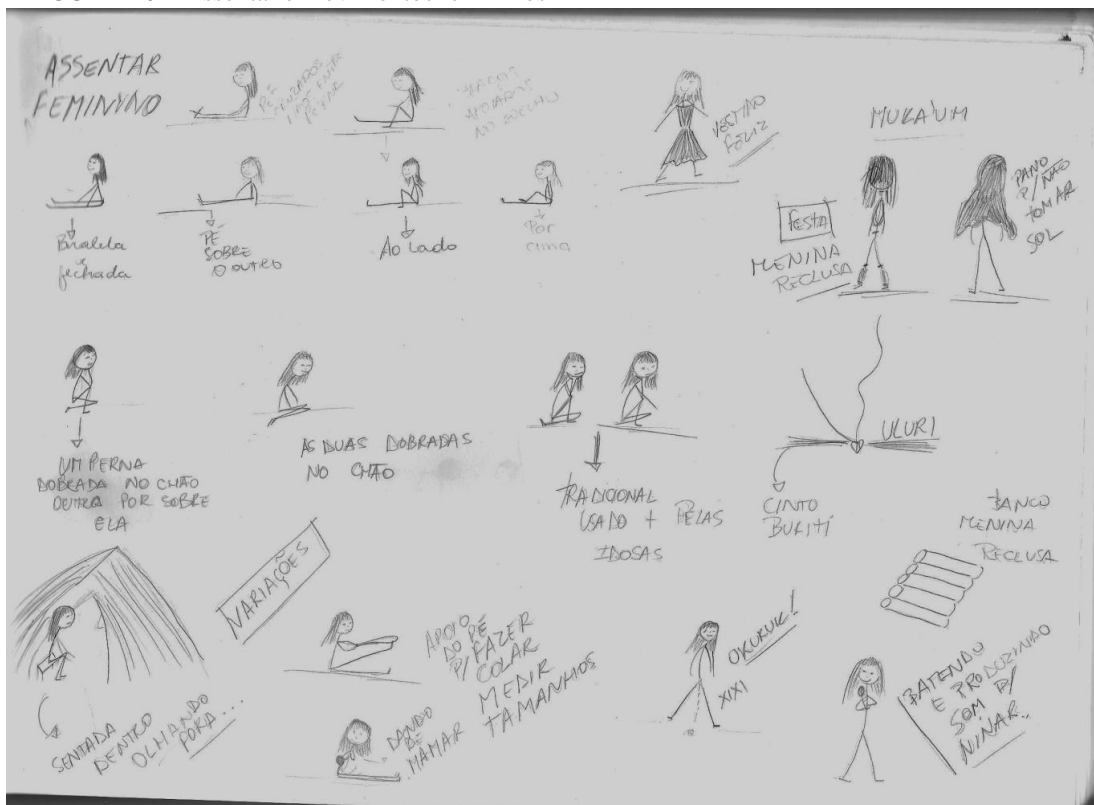 ASSENTAR
FEMININO
PÉ
CRUZADOS
BRAÇOS
APOIADOS
NO JOELHO
VESTIDO
FELIZ
MUKA'UM
FESTA
MENINA
RECLUSA
PANO
P/ NÃO
TOMAR
SOL
fechada
PÉ
SOBRE
O OUTRO
Ao Lado
Por
cima
UM PERNA
DOBRADA NO CHÃO
OUTRA POR SOBRE
ELA
AS DUAS DOBRADAS
NO CHÃO
TRADICIONAL
USADO + PELAS
IDOSAS
ULURI
CINTO
BURITI
BANCO
MENINA
RECLUSA
VARIAÇÕES
SENTADA
DENTRO
OLHANDO
FORA...
APOIO
DO PÉ
P/ FAZER
COLAR
MEDIR
TAMANHOS
DANDO
DE
MAMAR
OKURUK!
XIXI
BATENDO
E PRODUZINDO
SOM P/
NINAR...